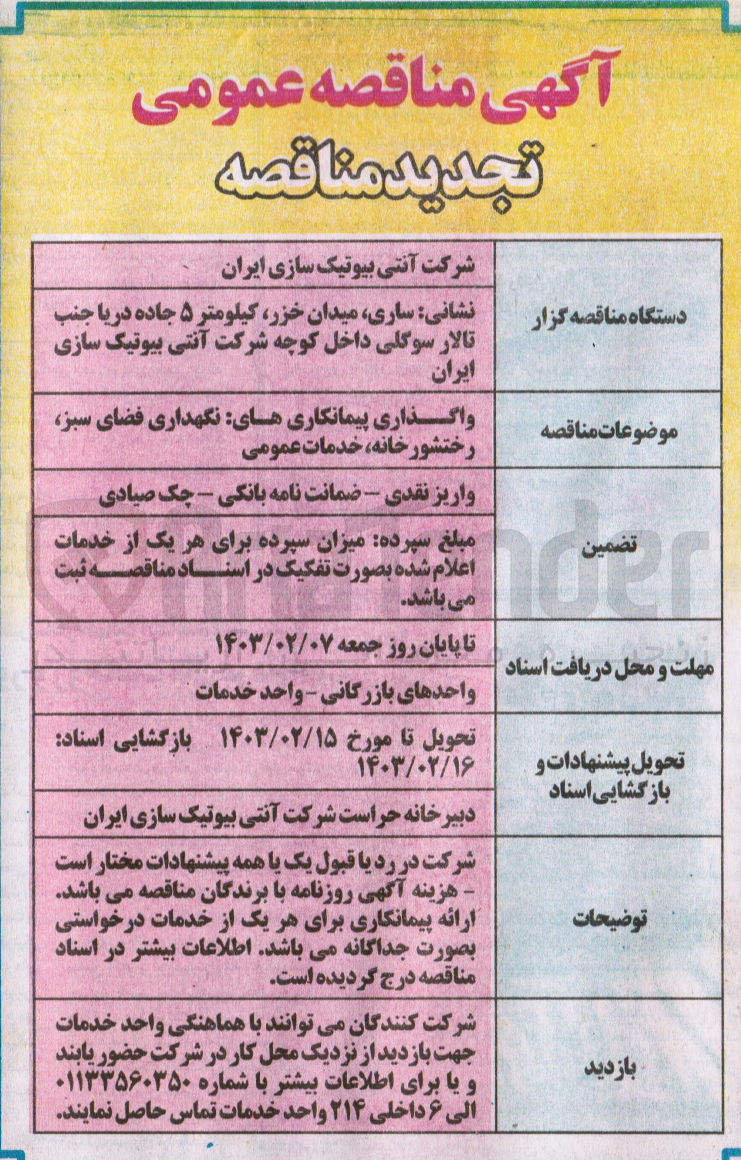 آگهی مناقصه عمومی
تجدید مناقصه
دستگاه مناقصه گزار
شرکت آنتی بیوتیک سازی ایران
نشانی: ساری، میدان خزر، کیلومتر ۵ جاده دریا جنب
تالار سوگلی داخل کوچه شرکت آنتی بیوتیک سازی
ایران
موضوعات مناقصه
واگـــذاری پیمانکاری هـای: نگهداری فضای سبز،
رختشورخانه، خدمات عمومی
تضمین
واریز نقدی – ضمانت نامه بانکی – چک صیادی
مبلغ سپرده: میزان سپرده برای هر یک از خدمات
اعلام شده بصورت تفکیک در اسناد مناقصه ثبت
می باشد.
مهلت و محل دریافت اسناد
تا پایان روز جمعه ۱۴۰۳/۰۲/۰۷
واحدهای بازرگانی - واحد خدمات
تحویل پیشنهادات و
بازگشایی اسناد
تحویل تا مورخ ۱۴۰۳/۰۲/۱۵ بازگشایی اسناد:
۱۴۰۳/۰۲/۱۶
دبیرخانه حراست شرکت آنتی بیوتیک سازی ایران
توضیحات
شرکت در رد یا قبول یک یا همه پیشنهادات مختار است
- هزینه آگهی روزنامه با برندگان مناقصه می باشد.
ارائه پیمانکاری برای هر یک از خدمات درخواستی
بصورت جداگانه می باشد. اطلاعات بیشتر در اسناد
مناقصه درج گردیده است.
بازدید
شرکت کنندگان می توانند با هماهنگی واحد خدمات
جهت بازدید از نزدیک محل کار در شرکت حضور یابند
و یا برای اطلاعات بیشتر با شماره ۰۱۱۳۳۵۶۰۳۵۰
الی ۶ داخلی ۲۱۴ واحد خدمات تماس حاصل نمایند.